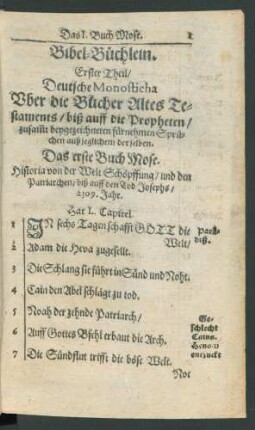 Das I. Buch Mose. 1
Bibel-Büchlein.
Erster Theil/
Deutsche Monosticha
Vber die Bücher Altes Te-
staments / biß auff die Propheten /
zusamt beygezeichneten fürnehmen Sprü-
chen auß jeglichem derselben.
Das erste Buch Mose.
Historia von der Welt Schöpffung / und den
Patriarchen / biß auff den Tod Josephs /
2309. Jahr.
Hat L. Capitel.
1 IN sechs Tagen schafft GOTT die
Welt/
Para-
diß.
2 Adam die Heva zugesellt.
3 Die Schlang sie führt in Sünd und Noht.
4 Cain den Abel schlägt zu tod.
5 Noah der zehnde Patriarch /
Ge-
schlecht
Cains.
Henoch
entzuckt
6 Auff Gottes Bfehl erbaut die Arch.
7 Die Sündflut trifft die böse Welt.